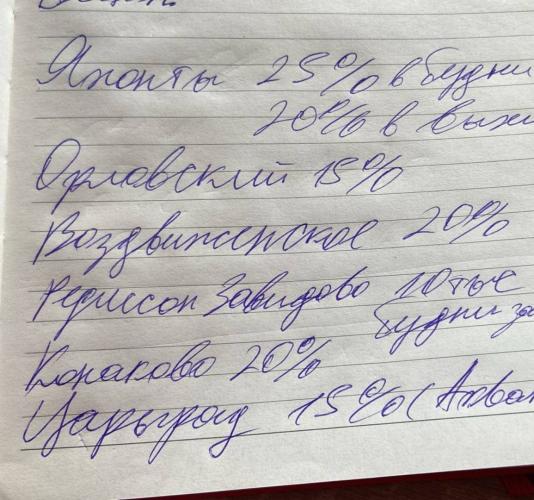 Яхонты 25% в будни
20% в выхи
Орловский 15%
Воздвиженское 20%
Редисон Завидово 10 тыс
будни за
Конаково 20%
Царьград 15% (